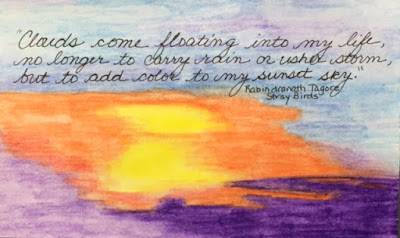 "Clouds come floating into my life,
no longer to carry rain or usher storm,
but to add color to my sunset sky."
Rabindranath Tagore
Stray Birds